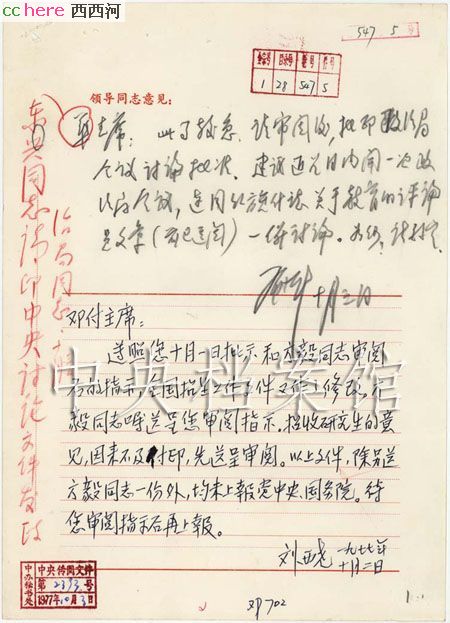 cchere 西西河
547 5 号
1 28 547 5
领导同志意见：
华主席：此事较急，请审阅后，批印政治局
会议讨论批准。建议近几日内开一次政
治局会议，连同 关于教育的评论
员文章（前已送阅）一併讨论。如何，请批示。
十月三日
东兴同志：请印中央讨论文件发政
治局同志
邓付主席：
遵照您十月一日批示和方毅同志审阅
后的指示，全国招生工作文件又作了修改。方
毅同志嘱送呈您审阅指示。招收研究生的意
见，因来不及付印，先送呈审阅。以上文件，除另送
方毅同志一份外，均未上报党中央、国务院。待
您审阅指示后再上报。
刘西尧 一九七七年
十月二日
中央档案馆
中办秘书处
中央传阅文件
第2393号
1977年10月3日
邓702